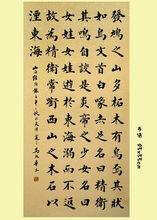 發鳩之山多柘木有鳥焉其狀
如烏文首白喙赤足名曰精衛
其鳴自詨是炎帝之少女名曰
女娃女娃遊於東海溺而不返
故為精衛常銜西山之木石以
湮東海